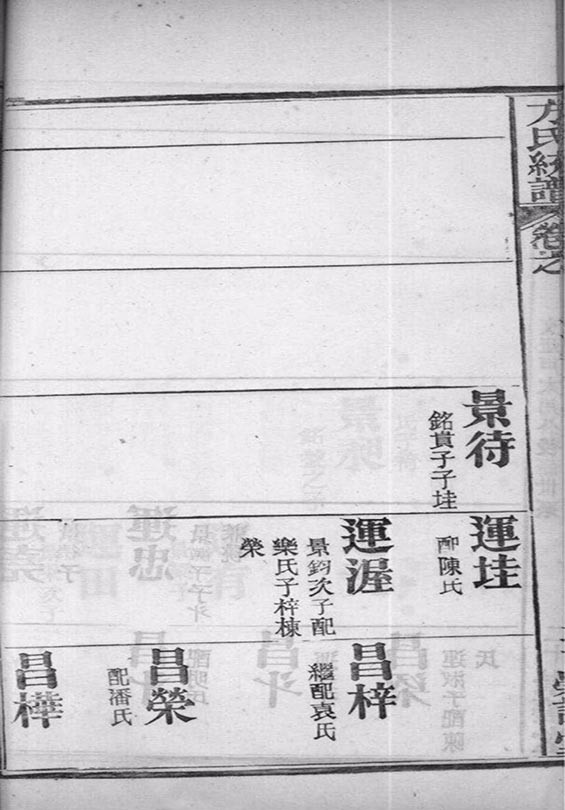 方氏統譜
卷之
景待
銘貴子子垤
運垤
配陳氏
運渥
景鈞次子配
樂氏子梓棟
榮
昌梓
繼配袁氏
昌榮
配潘氏
昌樺